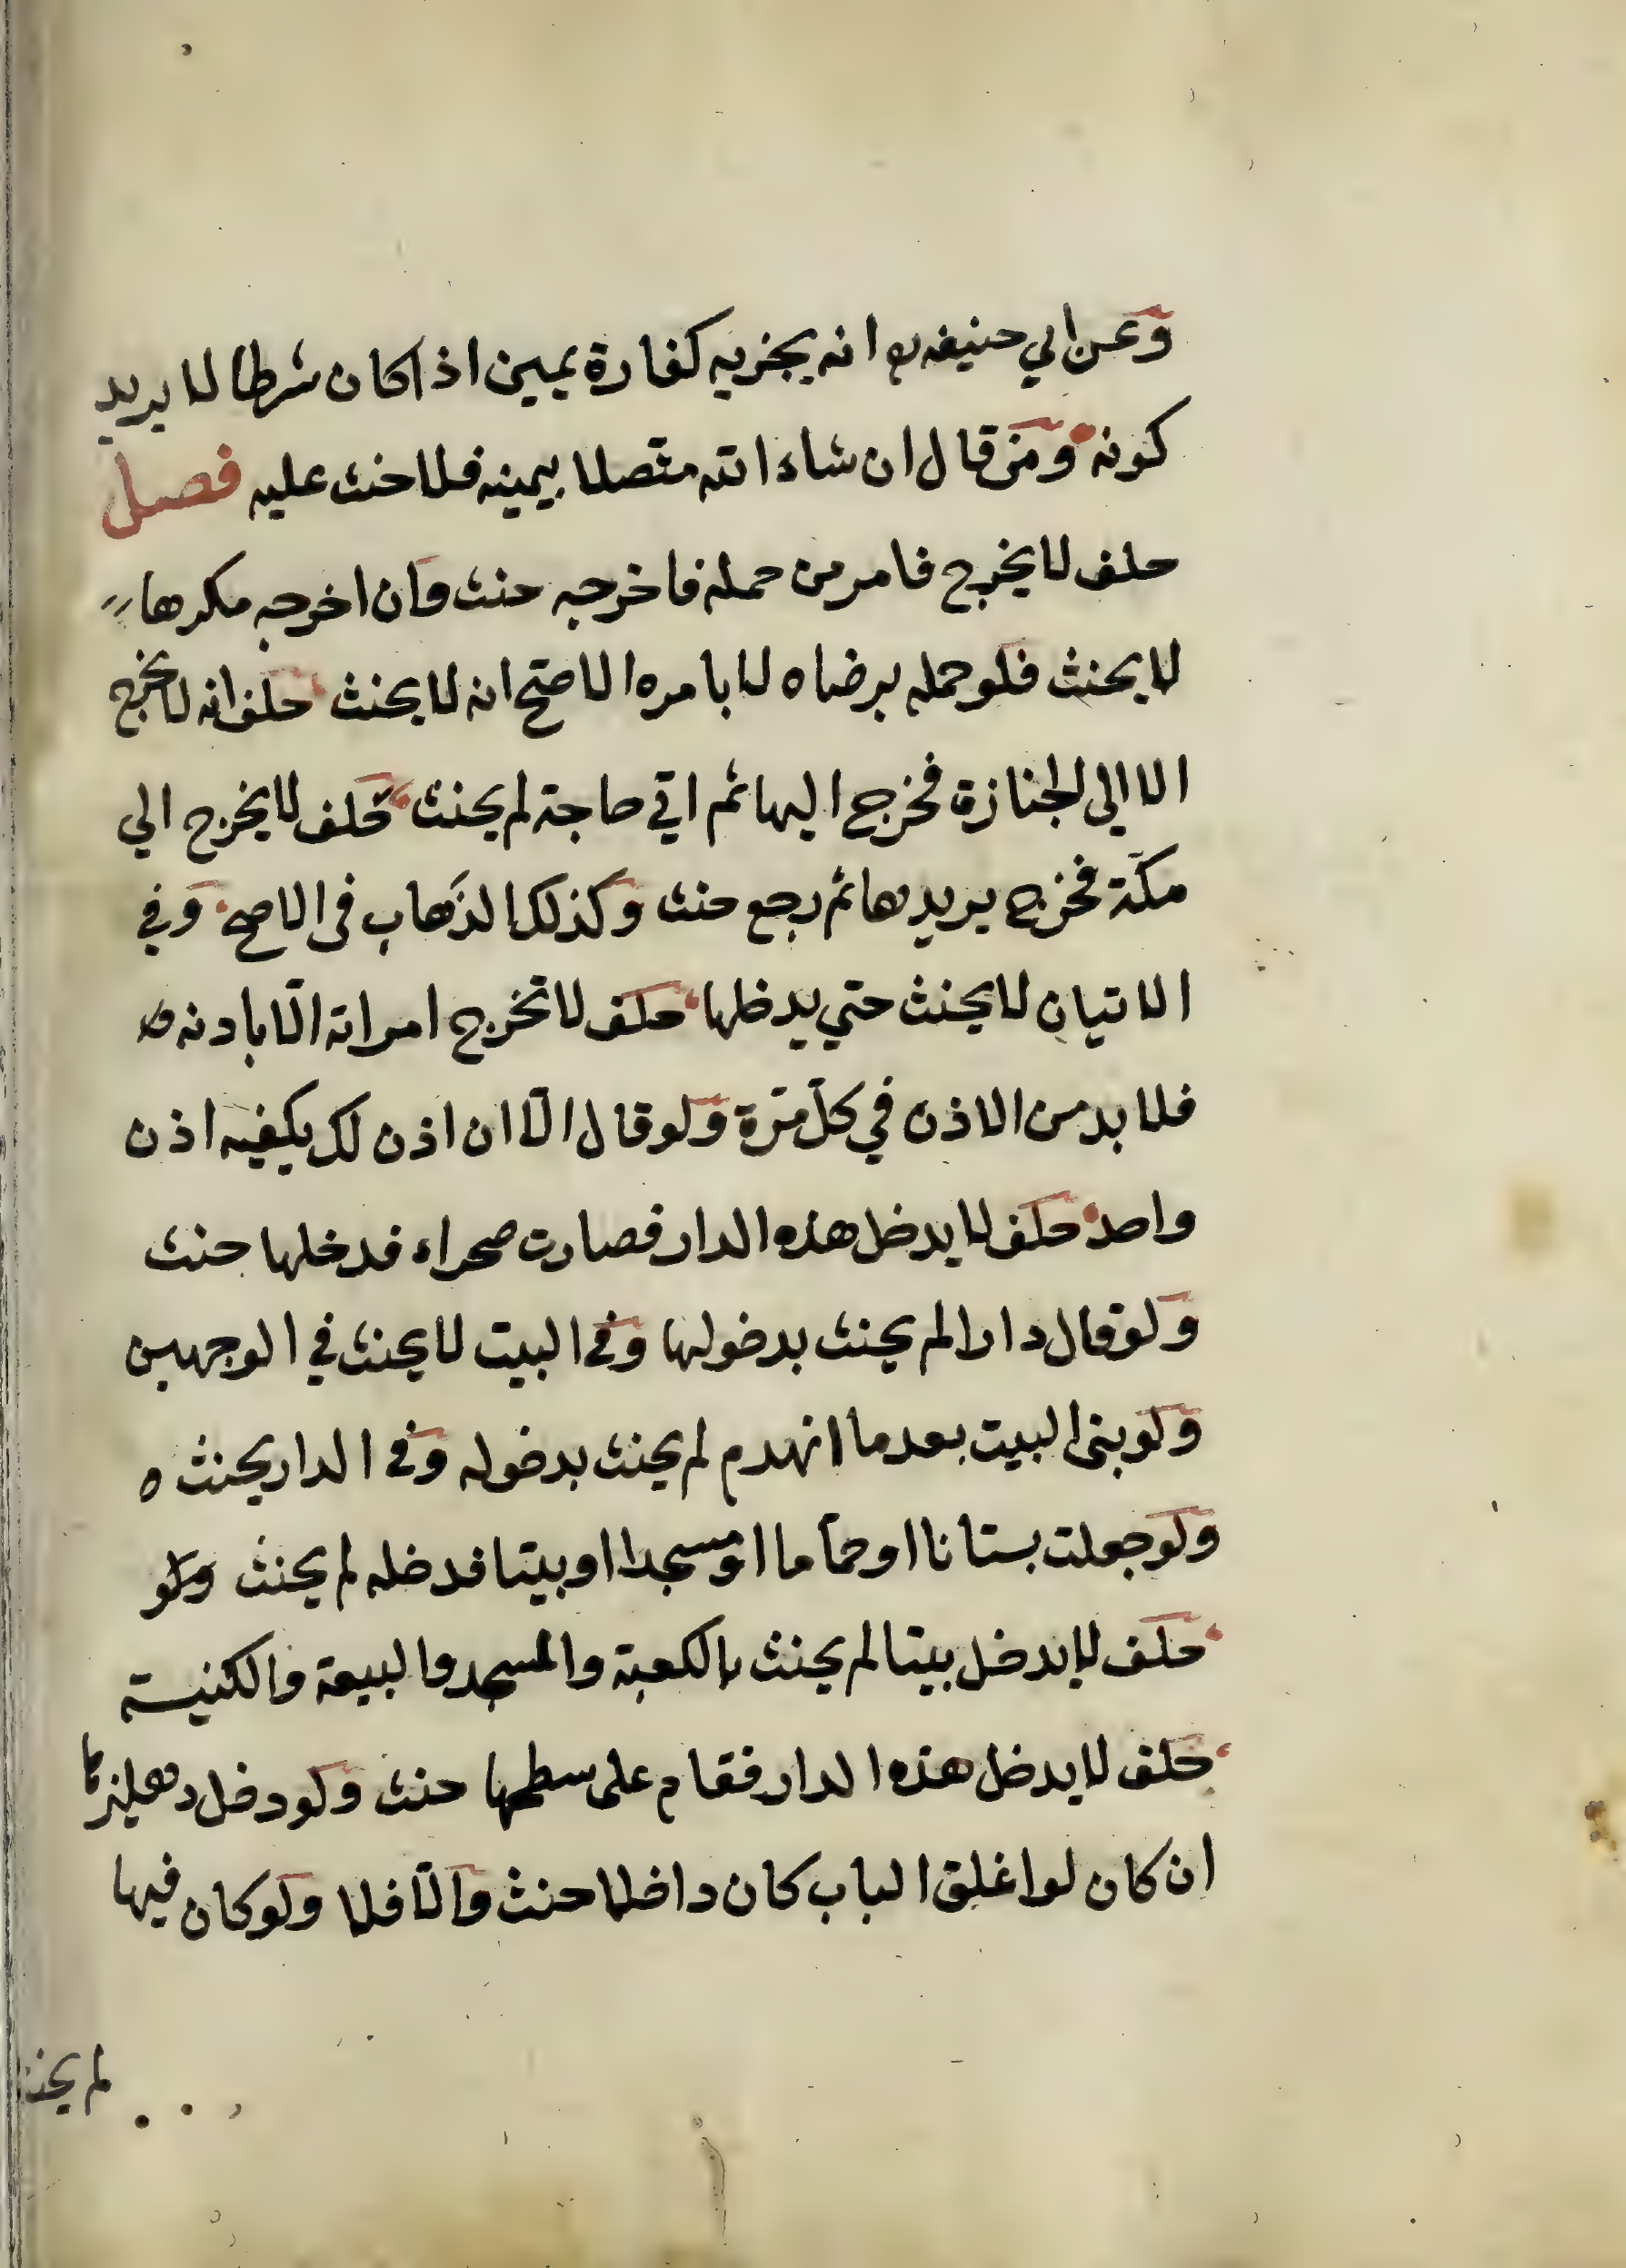 وعن ابي حنيفه رح انه يجزيه كفارة يمين اذا كان شرطا لا يريد
كونه ومن قال ان شاء الله متصلا بيمينه فلا حنث عليه فصل
حلف لا يخرج فامر من حمله فاخرجه حنث وان اخرجه مكرها
لا يحنث فلو حمله برضاه لا بامره الاصح انه لا يحنث حلف انه لا يخرج
الا الي الجنازة فخرج اليها ثم اتي حاجة لم يحنث حلف لا يخرج الي
مكّة فخرج يريدها ثم رجع حنث وكذلك الذهاب في الاصح وفي
الاتيان لا يحنث حتي يدخلها حلف لا تخرج امراته الّا باذنه
فلا بد من الاذن في كلّ مرّة ولو قال الّا ان اذن لك يكفيه اذن
واحد حلف لا يدخل هذه الدار فصارت صحراء فدخلها حنث
ولو قال دارا لم يحنث بدخولها وفي البيت لا يحنث في الوجهين
ولو بنى البيت بعدما انهدم لم يحنث بدخوله وفي الدار يحنث ه
ولو جعلت بستانا او حمّاما او مسجدا او بيتا فدخله لم يحنث ولو
حلف لا يدخل بيتا لم يحنث بالكعبة والمسجد والبيعة والكنيسة
حلف لا يدخل هذه الدار فقام على سطحها حنث ولو دخل دهليزها
ان كان لو اغلق الباب كان داخلا حنث والّا فلا ولو كان فيها
لم يحنث